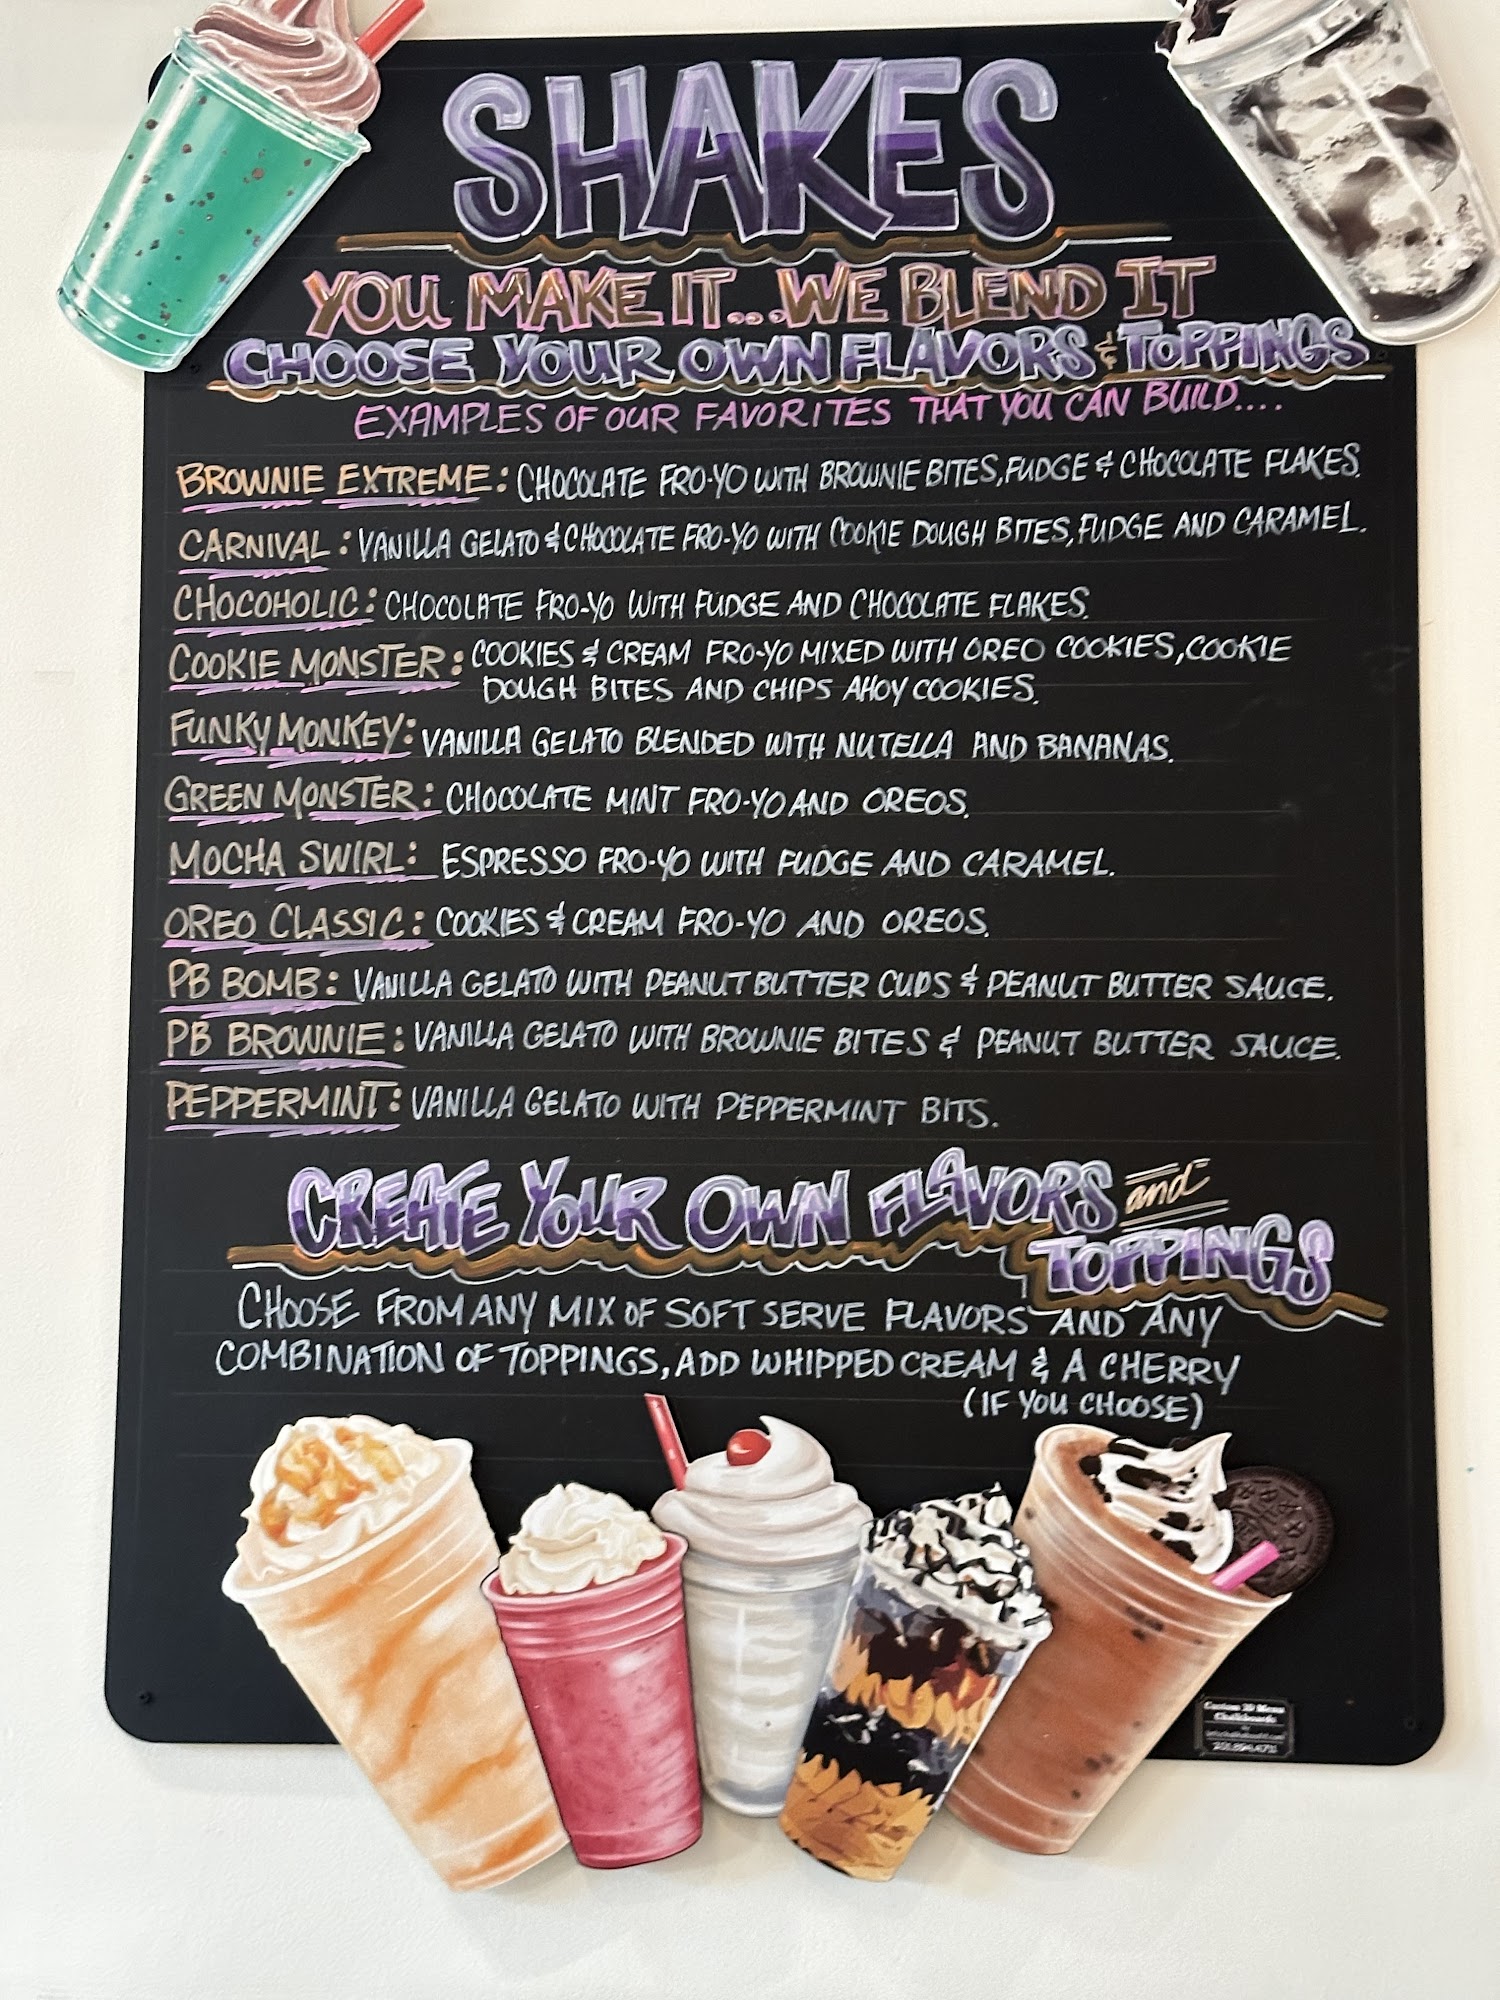 SHAKES
YOU MAKE IT...WE BLEND IT
CHOOSE YOUR OWN FLAVORS & TOPPINGS
EXAMPLES OF OUR FAVORITES THAT YOU CAN BUILD....
BROWNIE EXTREME: CHOCOLATE FRO-YO WITH BROWNIE BITES, FUDGE & CHOCOLATE FLAKES.
CARNIVAL: VANILLA GELATO & CHOCOLATE FRO-YO WITH COOKIE DOUGH BITES, FUDGE AND CARAMEL.
CHOCOHOLIC: CHOCOLATE FRO-YO WITH FUDGE AND CHOCOLATE FLAKES.
COOKIE MONSTER: COOKIES & CREAM FRO-YO MIXED WITH OREO COOKIES, COOKIE
DOUGH BITES AND CHIPS AHOY COOKIES.
FUNKY MONKEY: VANILLA GELATO BLENDED WITH NUTELLA AND BANANAS.
GREEN MONSTER: CHOCOLATE MINT FRO-YO AND OREOS.
MOCHA SWIRL: ESPRESSO FRO-YO WITH FUDGE AND CARAMEL.
OREO CLASSIC: COOKIES & CREAM FRO-YO AND OREOS.
PB BOMB: VANILLA GELATO WITH PEANUT BUTTER CUPS & PEANUT BUTTER SAUCE.
PB BROWNIE: VANILLA GELATO WITH BROWNIE BITES & PEANUT BUTTER SAUCE.
PEPPERMINT: VANILLA GELATO WITH PEPPERMINT BITS.
CREATE YOUR OWN FLAVORS and
TOPPINGS
CHOOSE FROM ANY MIX OF SOFT SERVE FLAVORS AND ANY
COMBINATION OF TOPPINGS, ADD WHIPPED CREAM & A CHERRY
(IF YOU CHOOSE)
Custom 3D Menu
Chalkboards
by